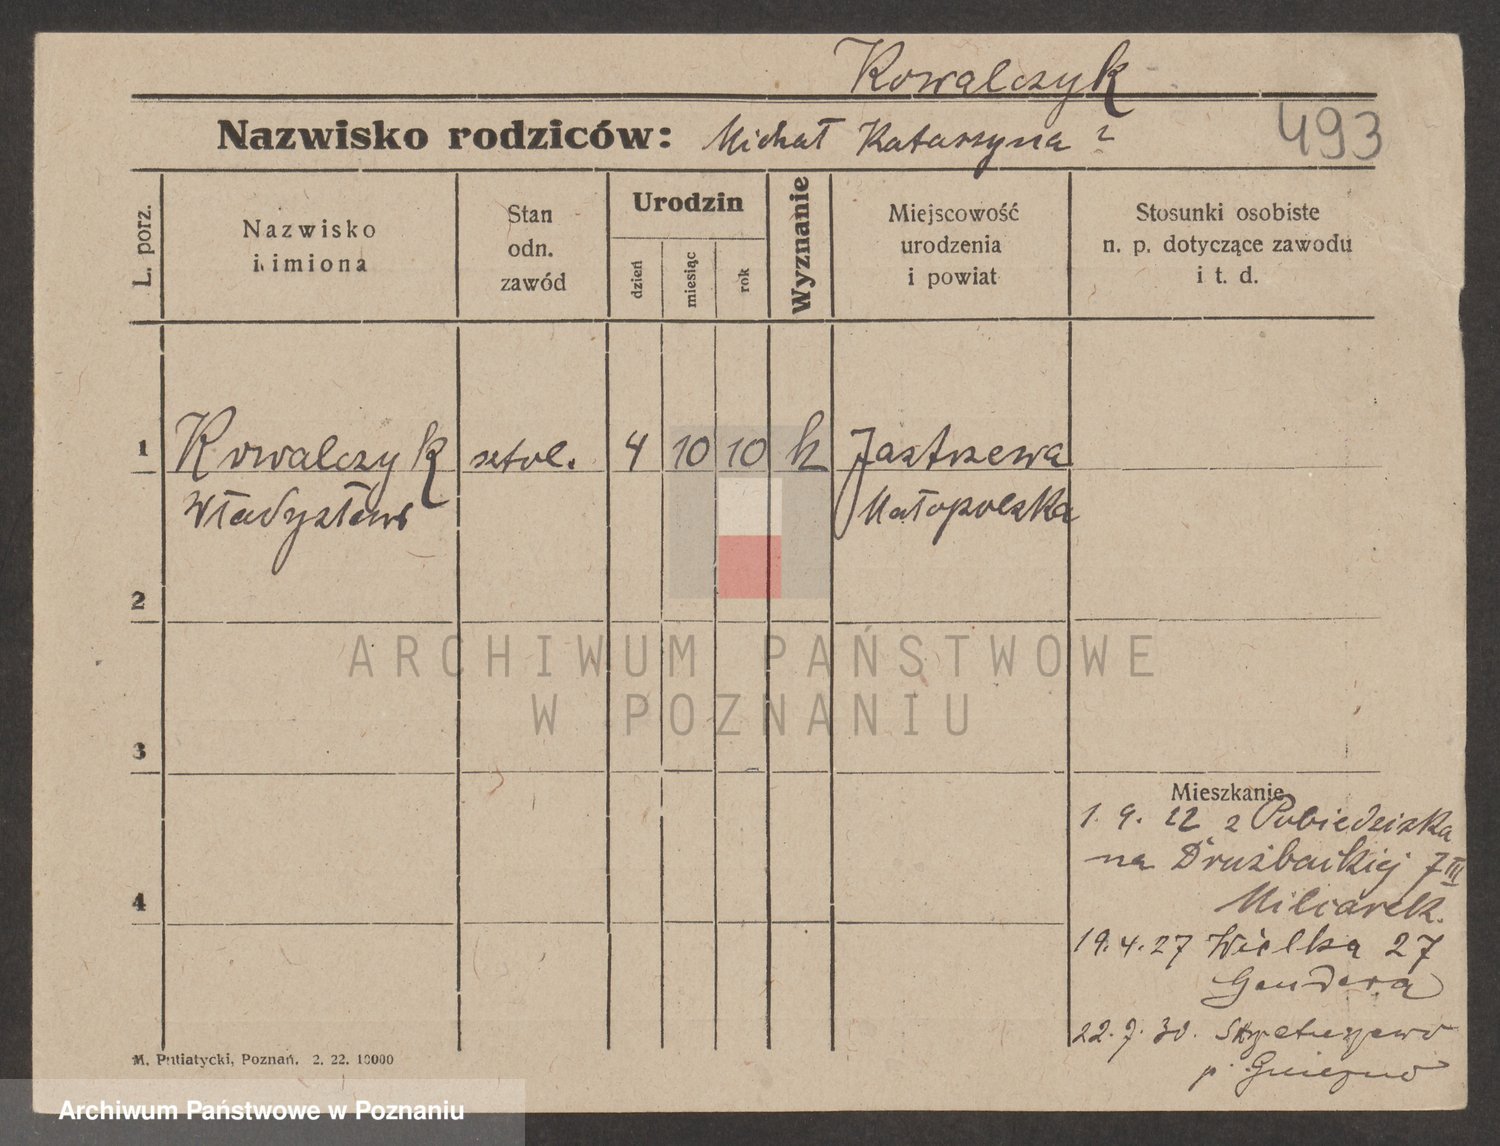 Kowalczyk
Nazwisko rodziców: Michał Katarzyna ?
493
L. porz.
Nazwisko
i imiona
Stan
odn.
zawód
Urodzin
dzień
miesiąc
rok
Wyznanie
Miejscowość
urodzenia
i powiat
Stosunki osobiste
n. p. dotyczące zawodu
i t. d.
1 Kowalczyk stol. 4 10 10 k Jastrzewa
Władysław Małopolska
2
3
4
Mieszkanie
1. 9. 22 z Pobiedziska
na Drużbackiej 7 III
Milcarek.
19. 4. 27 Wielka 27
Gendera
22. 7. 30.
p. Gniezno
M. Putiatycki, Poznań. 2. 22. 10000
ARCHIWUM PAŃSTWOWE
W POZNANIU
Archiwum Państwowe w Poznaniu